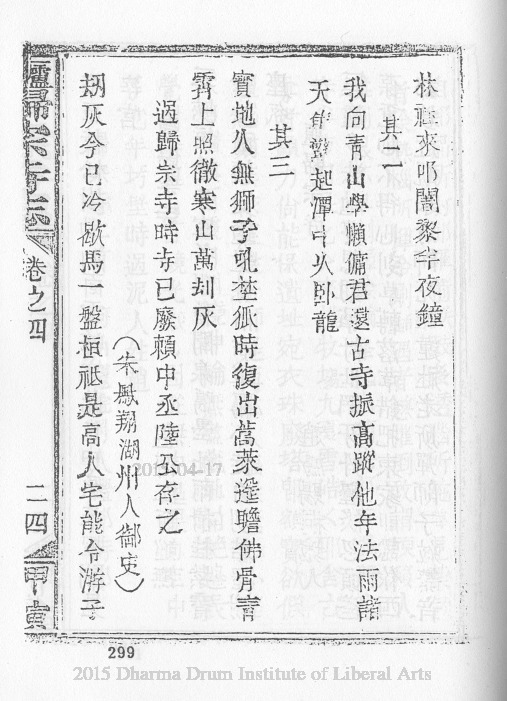 林裡來叩闍黎半夜鐘
其二
我向青山學懶傭君還古寺振高蹤他年法雨諸
天隼鼙起潭中火臥龍
其三
寶地人無獅子吼埜狐時復出蒿萊遙瞻佛骨青
霄上照徹寒山萬刦灰
過歸宗寺時寺已廢賴中丞陸公存之
(朱鳳翔湖州人御史)
刼灰今已冷歇馬一盤桓祗是高人宅能令游子
廬山歸宗寺志
卷之四
二四
甲寅
2015-04-17
299
2015 Dharma Drum Institute of Liberal Arts